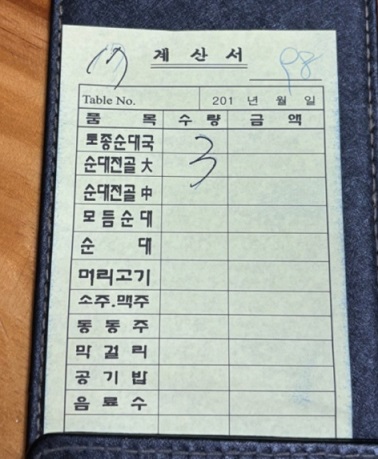 계 산 서
98
Table No. 201 년 월 일
품 목 수 량 금 액
토종순대국 3
순대전골 大
순대전골 中
모듬순대
순 대
머리고기
소주.맥주
동 동 주
막 걸 리
공 기 밥
음 료 수